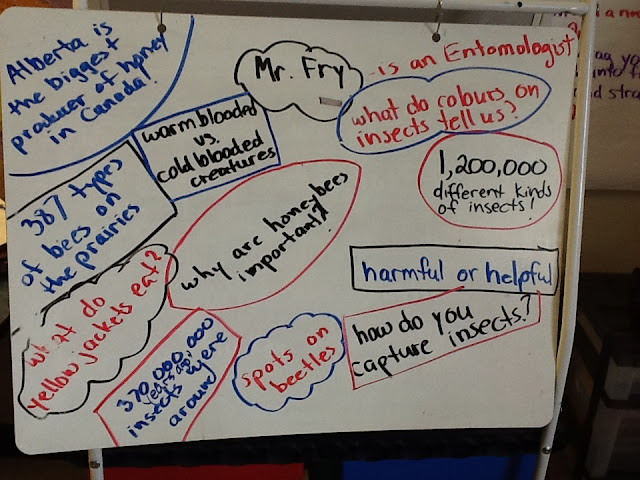 Alberta is
the biggest
producer of honey
in Canada!
Mr. Fry
is an Entomologist?
what do colours on
insects tell us?
warmblooded
vs.
coldblooded
creatures
1,200,000
different kinds
of insects!
387 types
of bees on
the prairies
why are honeybees
important?
harmful or helpful
what do
yellow jackets eat?
370,000,000
years ago,
insects were
around
spots on
beetles
how do you
capture insects?